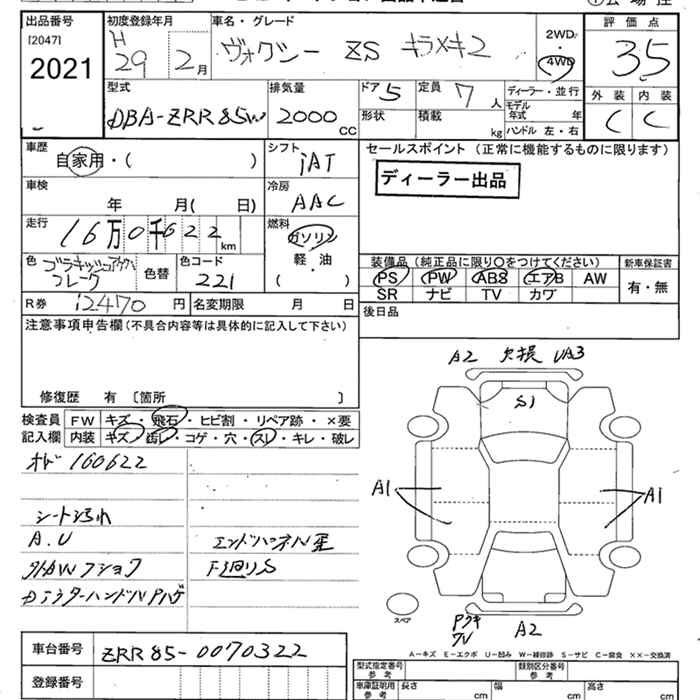 出品番号
[2047]
2021
初度登録年月
H 29 2月
車名・グレード
ヴォクシー ZS キラメキ2
2WD
・
4WD
評価点
3.5
型式
DBA-ZRR85W
排気量
2000 CC
ドア 5
形状
定員 7 人
積載 kg
ディーラー・並行
モデル年式 年
ハンドル 左・右
外装 内装
C C
車歴
自家用・( )
シフト
IAT
セールスポイント (正常に機能するものに限ります)
ディーラー出品
車検
年 月( 日)
冷房
AAC
走行
16万0千622km
燃料
ガソリン
軽・油
( )
色
色替
色コード
221
装備品 (純正品に限り○をつけてください)
新車保証書
PS PW ABS エアB AW
SR ナビ TV カワ
有・無
R券 12470円
名変期限 月 日
後日品
注意事項申告欄(不具合内容等は具体的に記入して下さい)
修復歴 有 〔箇所 〕
検査員
記入欄
FW キズ・飛石・ヒビ割・リペア跡・×要
内装 キズ・汚レ・コゲ・穴・スレ・キレ・破レ
オド 160622
シート汚れ
A.U
エンドパネル歪
下廻りS
A2 欠損 UA3
S1
A1
A1
スペア
A2
A-キズ E-エクボ U-凹み W-補修跡 S-サビ C-腐食 ××-交換済
車台番号 ZRR85-0070322
登録番号
型式指定番号
参考
類別区分番号
参考
車庫証明用
参考
長さ cm
幅 cm
高さ cm